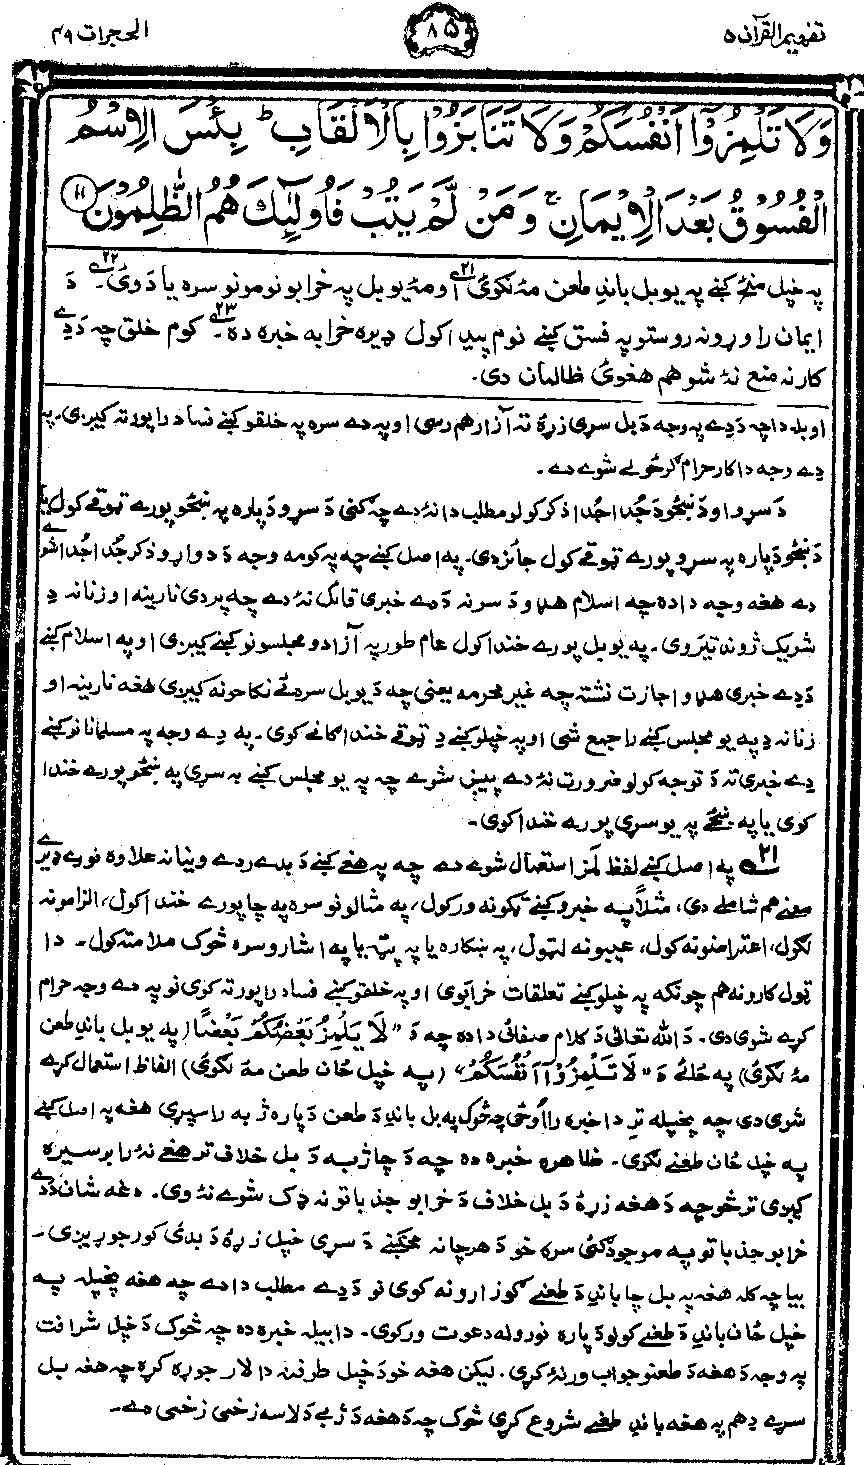 تفہیم القرآن ۵ ۸۵ الحجرات ۴۹
وَلَا تَلْمِزُوْٓا اَنْفُسَكُمْ وَلَا تَنَابَزُوْا بِالْاَلْقَابِ ؕ بِئْسَ الِاسْمُ
الْفُسُوْقُ بَعْدَ الْاِيْمَانِ ۚ وَمَنْ لَّمْ يَتُبْ فَاُولٰٓئِكَ هُمُ الظّٰلِمُوْنَ ۝۱۱
په خپل منځ کښے په یو بل باندِ طعن مهٔ لګوئ ۲۱ او مهٔ یو بل په خرابو نومونو سره یادَوئ ۲۲۔ دَ
ایمان راوړو نه روستو په فسق کښے نوم پیدا کول ډیره خرابه خبره ده ۲۳۔ کوم خلق چه دَ دِے
کار نه منع نهٔ شو هم هغوئ ظالمان دی۔
او بله دا چه دَ دِے په وجه دَ بل سړی زړهٔ ته آزار هم رسی او په دے سره په خلقو کښے فساد راپورته کیږی۔ په
دِے وجه دا کار حرام ګرځولے شوے دے۔
دَ سړو او دَ ښځو دَ جُدا جُدا ذکر کولو مطلب دا نهٔ دے چه ګنی دَ سړو دَ پاره په ښځو پورے ټوقے کول یا
دَ ښځو دَ پاره په سړو پورے ټوقے کول جائز دی۔ په اصل کښے چه په کومه وجه دَ دواړو ذکر جُدا جُدا شوے
دے هغه وجه دا ده چه اسلام هډو دَ سر نه دَ دے خبری قائل نهٔ دے چه پردی نارینه او زنانه دِ
شریک ژوند تیروی۔ په یو بل پورے خندا کول عام طور په آزادو مجلسونو کښے کیږی او په اسلام کښے
دَ دِے خبری هډو اجازت نشته چه غیر محرمه یعنی چه دَ یو بل سره ئے نکاحونه کیږی هغه نارینه او
زنانه دِ په یو مجلس کښے راجمع شی او په خپلو کښے دِ ټوقے خندا ګانے کوی۔ په دِے وجه په مسلمانانو کښے
دِے خبری ته دَ توجه کولو ضرورت نهٔ دے پیښ شوے چه په یو مجلس کښے به سړی په ښځو پورے خندا
کوی یا په ښځے په یو سړی پورے خندا کوی۔
۲۱ په اصل کښے لفظ لَمز استعمال شوے دے چه په هغے کښے دَ بدے ردے وینا نه علاوه نورے ډیرے
معنے هم شاملے دی، مثلاً په خبرو کښے ټکونه ورکول، په مثالونو سره په چا پورے خندا کول، الزامونه
لګول، اعتراضونه کول، عیبونه لټول، په ښکاره یا په پټه یا په اشارو سره څوک ملامته کول۔ دا
ټول کارونه هم چونکه په خپلو کښے تعلقات خرابوی او په خلقو کښے فساد راپورته کوی نو په دے وجه حرام
کړے شوی دی۔ دَ الله تعالیٰ دَ کلام صفائی دا ده چه دَ ”لَا يَلْمِزُ بَعْضُكُمْ بَعْضًا (په یو بل باندِ طعن
مهٔ لګوئ) په ځائے دَ ”لَا تَلْمِزُوْٓا اَنْفُسَكُمْ“ (په خپل ځان طعن مهٔ لګوئ) الفاظ استعمال کړے
شوی دی چه پخپله تر دا خبره راأوځی چه څوک په بل باندِ دَ طعن دَ پاره ژبه راسپړی هغه په اصل کښے
په خپل ځان طعنے لګوی۔ ظاهره خبره ده چه دَ چا ژبه دَ بل خلاف تر هغے نهٔ را برسیره
کیږی تر څو چه دَ هغه زړهٔ دَ بل خلاف دَ خرابو جذباتو نه ډک شوے نهٔ وی۔ دغه شان دَ دے
خرابو جذباتو په موجودګئ سره خو دَ هرچا نه مخکښے دَ سړی خپل زړهٔ دَ بدئ کور جوړیږی۔
بیا چه کله هغه په بل چا باندِ دَ طعنے ګوزارونه کوی نو دَ دِے مطلب دا دے چه هغه پخپله په
خپل ځان باندِ دَ طعنے کولو دَ پاره نورو له دعوت ورکوی۔ دا بیله خبره ده چه څوک دَ خپل شرافت
په وجه دَ هغه دَ طعنو جواب ور نهٔ کړی۔ لیکن هغه خو دَ خپل طرفنه دا لار جوړه کړه چه هغه بل
سړے دِ هم په هغه باندِ طعنے شروع کړی څوک چه دَ هغه دَ ژبے دَ لاسه زخمی زخمی دے۔